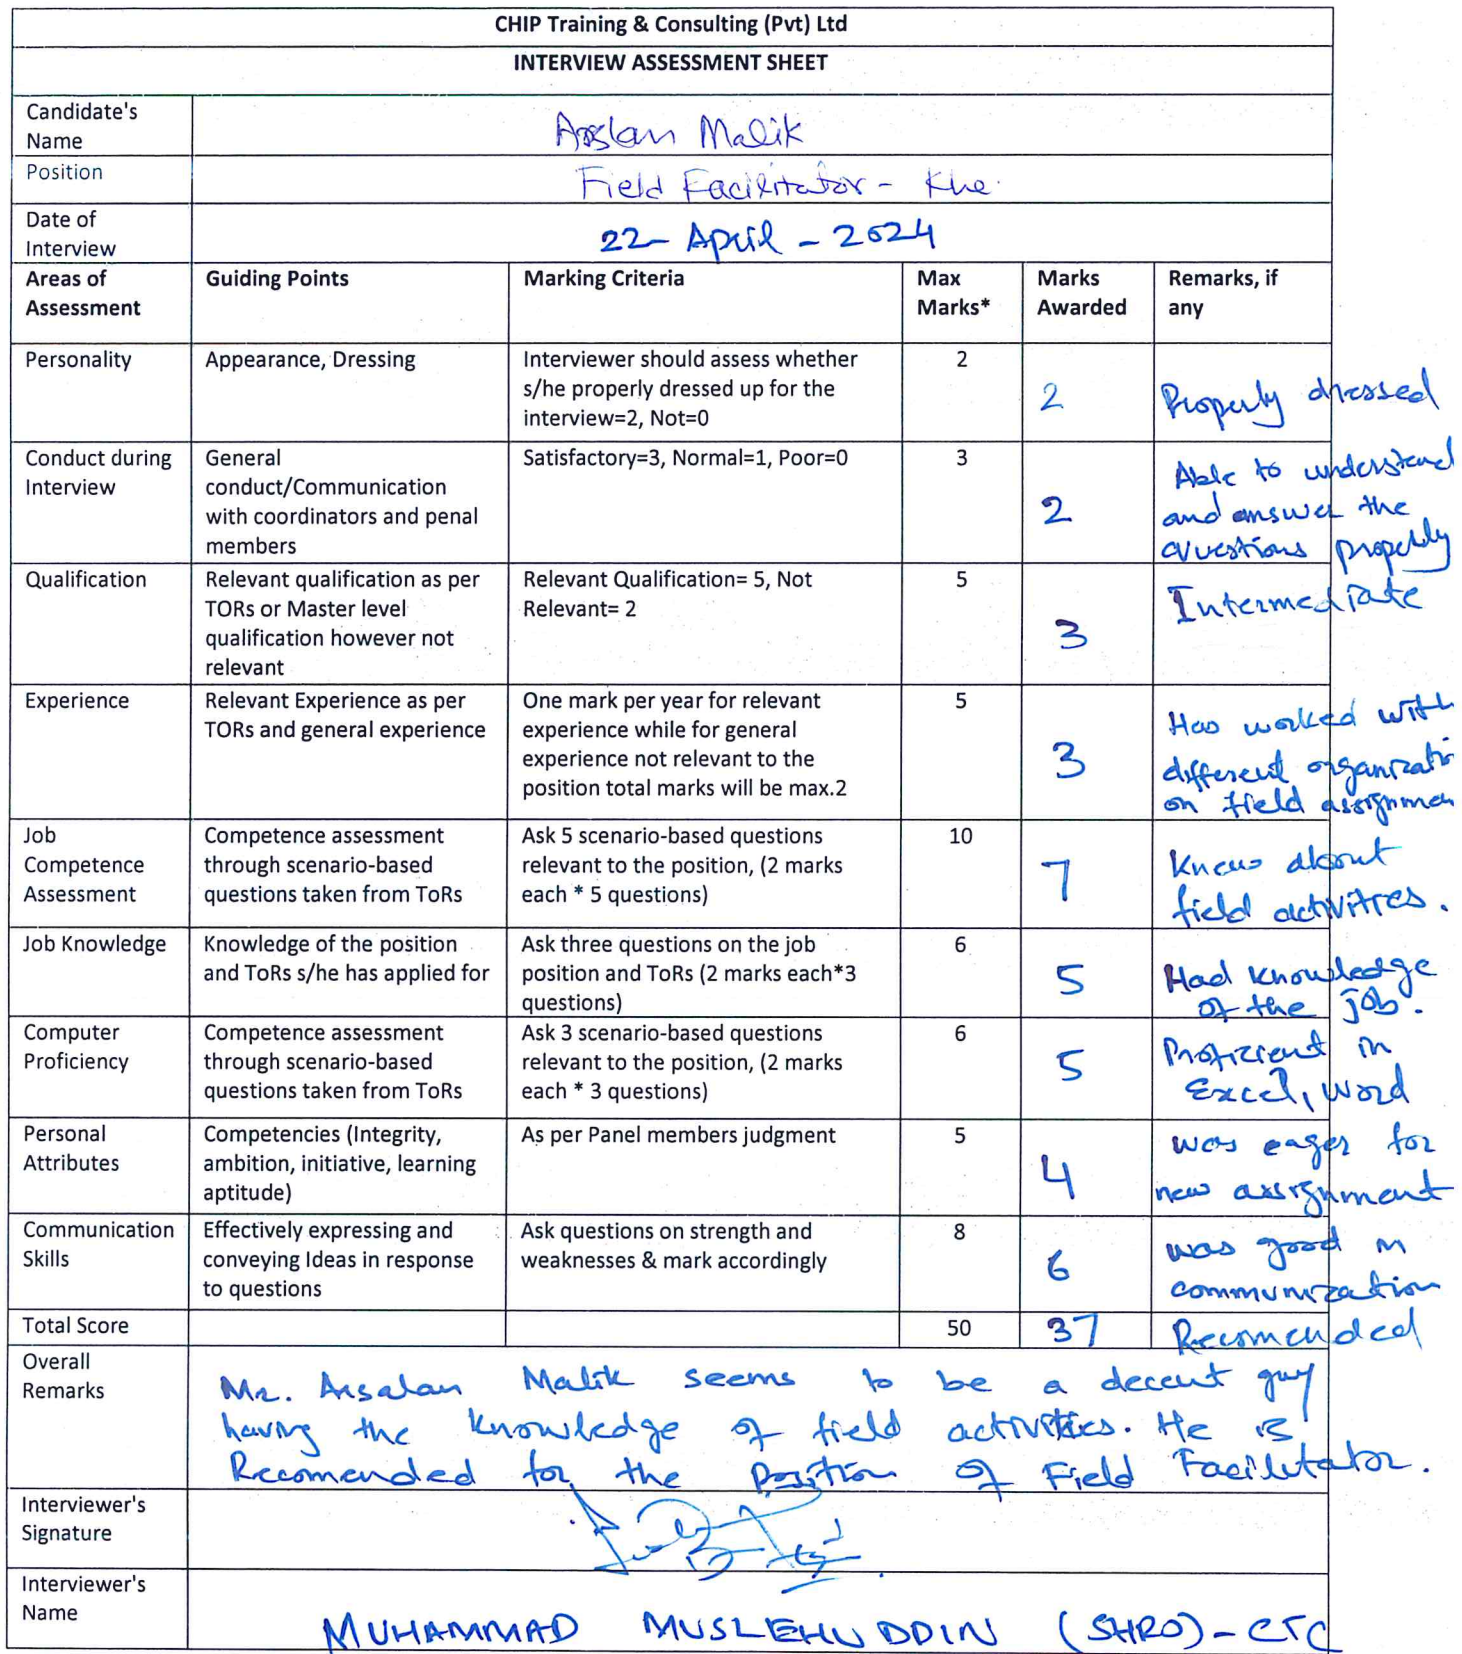 CHIP Training & Consulting (Pvt) Ltd
INTERVIEW ASSESSMENT SHEET
Candidate's
Name
Arslan Malik
Position
Field Facilitator - Khe.
Date of
Interview
22- April - 2024
Areas of
Assessment
Guiding Points
Marking Criteria
Max
Marks*
Marks
Awarded
Remarks, if
any
Personality
Appearance, Dressing
Interviewer should assess whether
s/he properly dressed up for the
interview=2, Not=0
2
2
Properly dressed
Conduct during
Interview
General
conduct/Communication
with coordinators and penal
members
Satisfactory=3, Normal=1, Poor=0
3
2
Able to understand
and answer the
questions properly
Qualification
Relevant qualification as per
TORs or Master level
qualification however not
relevant
Relevant Qualification= 5, Not
Relevant= 2
5
3
Intermediate
Experience
Relevant Experience as per
TORs and general experience
One mark per year for relevant
experience while for general
experience not relevant to the
position total marks will be max.2
5
3
Has worked with
different organizatio
on field assignmen
Job
Competence
Assessment
Competence assessment
through scenario-based
questions taken from ToRs
Ask 5 scenario-based questions
relevant to the position, (2 marks
each * 5 questions)
10
7
Knows about
field activities.
Job Knowledge
Knowledge of the position
and ToRs s/he has applied for
Ask three questions on the job
position and ToRs (2 marks each*3
questions)
6
5
Had knowledge
of the job.
Computer
Proficiency
Competence assessment
through scenario-based
questions taken from ToRs
Ask 3 scenario-based questions
relevant to the position, (2 marks
each * 3 questions)
6
5
Proficient in
Excel, Word
Personal
Attributes
Competencies (Integrity,
ambition, initiative, learning
aptitude)
As per Panel members judgment
5
4
was eager for
new assignment
Communication
Skills
Effectively expressing and
conveying Ideas in response
to questions
Ask questions on strength and
weaknesses & mark accordingly
8
6
was good in
communization
Total Score
50
37
Recomended
Overall
Remarks
Mr. Arsalan Malik seems to be a decent guy
having the knowledge of field activities. He is
Recomended for the Position of Field Facilitator.
Interviewer's
Signature
Interviewer's
Name
MUHAMMAD MUSLEHUDDIN (SHRO) - CTC